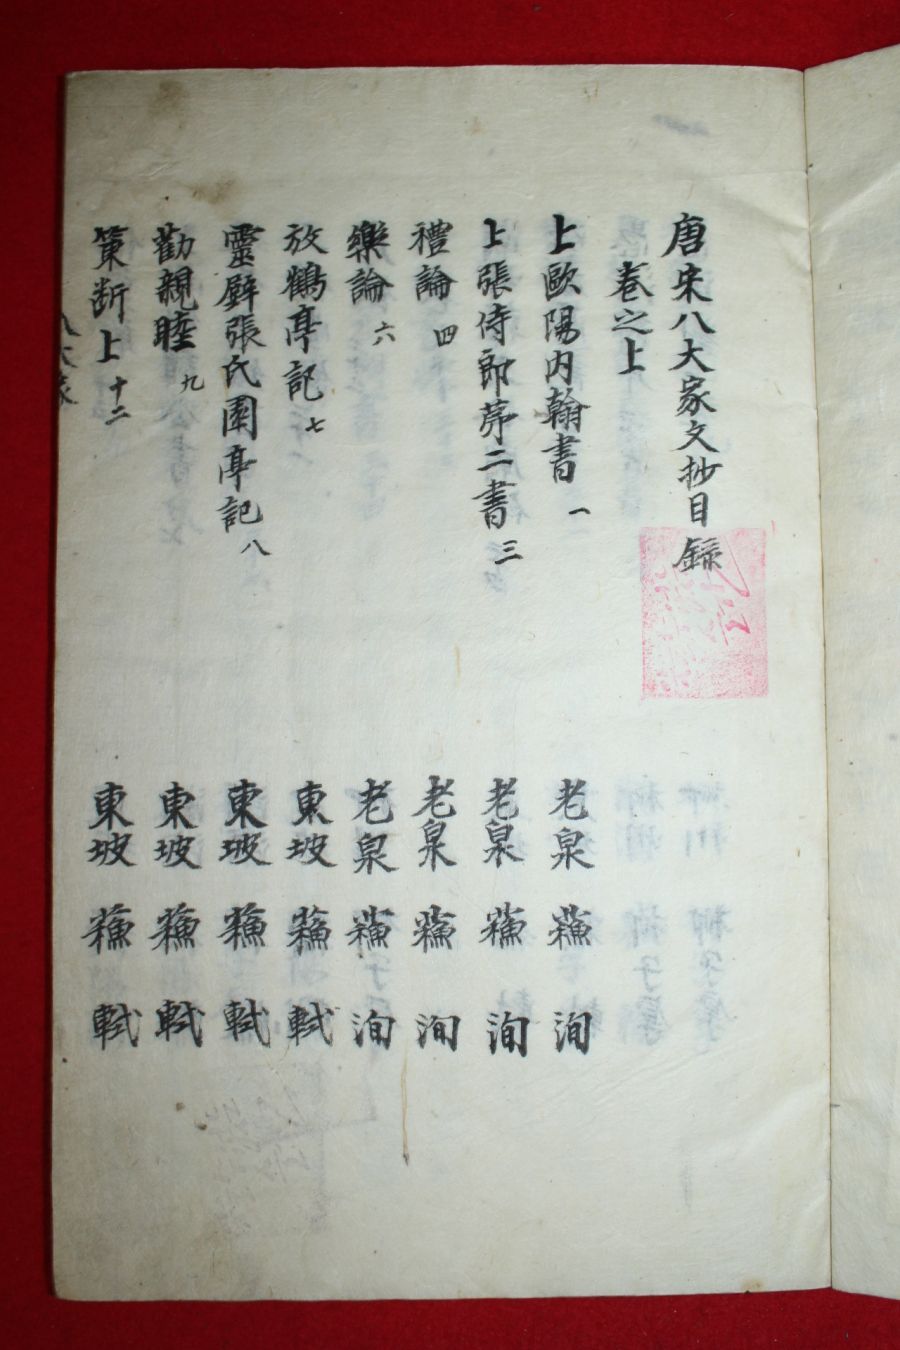 唐宋八大家文抄目錄
卷之上
上歐陽內翰書 一 老泉 蘇 洵
上張侍郎苐二書 三 老泉 蘇 洵
禮論 四 老泉 蘇 洵
樂論 六 老泉 蘇 洵
放鶴亭記 七 東坡 蘇 軾
靈壁張氏園亭記 八 東坡 蘇 軾
勸親睦 九 東坡 蘇 軾
策斷上 十二 東坡 蘇 軾
八大家